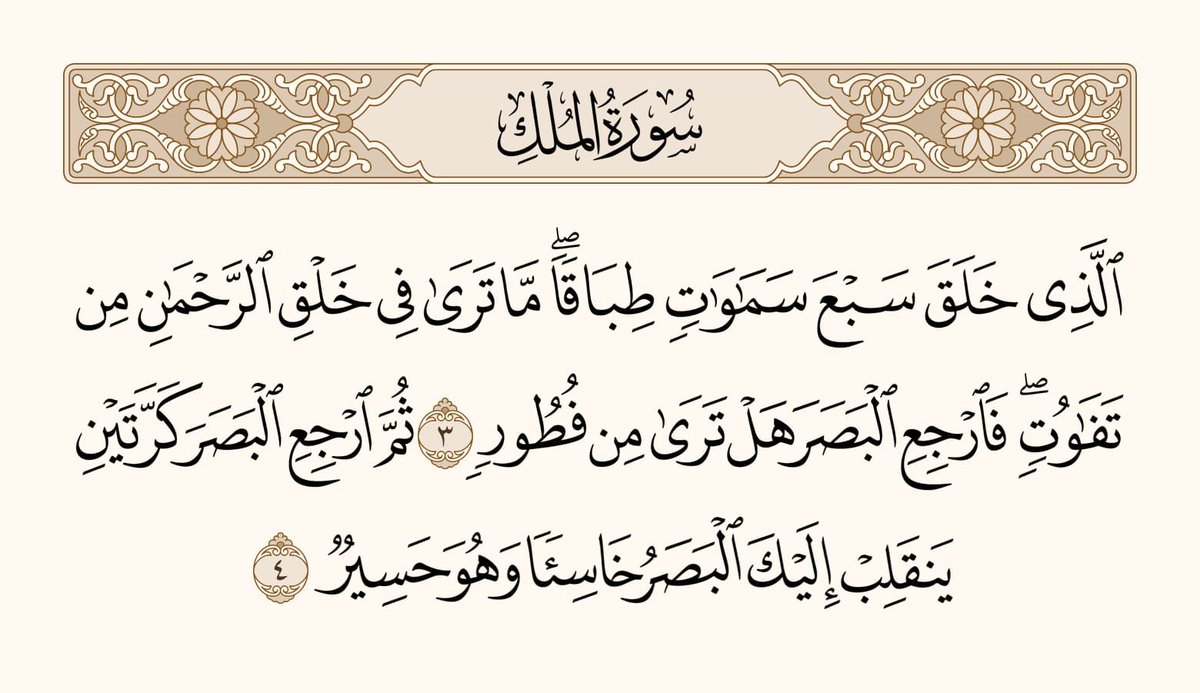 سُورَةُ المُلْكِ
ٱلَّذِى خَلَقَ سَبْعَ سَمَٰوَٰتٍ طِبَاقًاۖ مَّا تَرَىٰ فِى خَلْقِ ٱلرَّحْمَٰنِ مِن
تَفَٰوُتٍۖ فَٱرْجِعِ ٱلْبَصَرَ هَلْ تَرَىٰ مِن فُطُورٍ ٣ ثُمَّ ٱرْجِعِ ٱلْبَصَرَ كَرَّتَيْنِ
يَنقَلِبْ إِلَيْكَ ٱلْبَصَرُ خَاسِئًا وَهُوَ حَسِيرٌ ٤